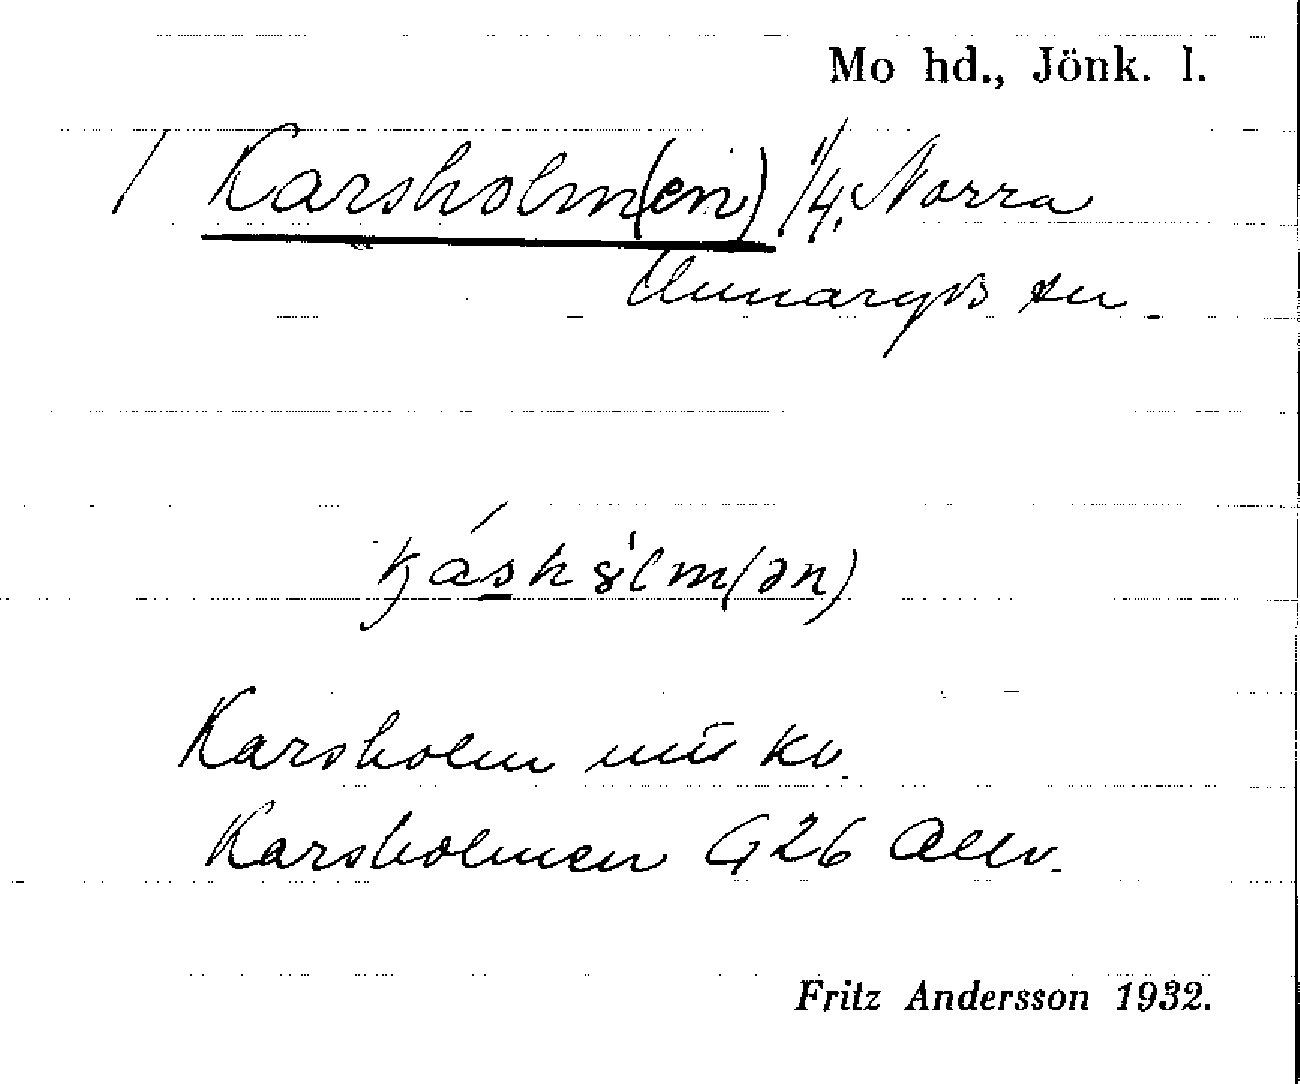 Mo hd., Jönk. l.
/ Karsholm(en) 1/4. Norra
Unnaryds sn
Karsholm
Karsholmen G26 Allv.
Fritz Andersson 1932.